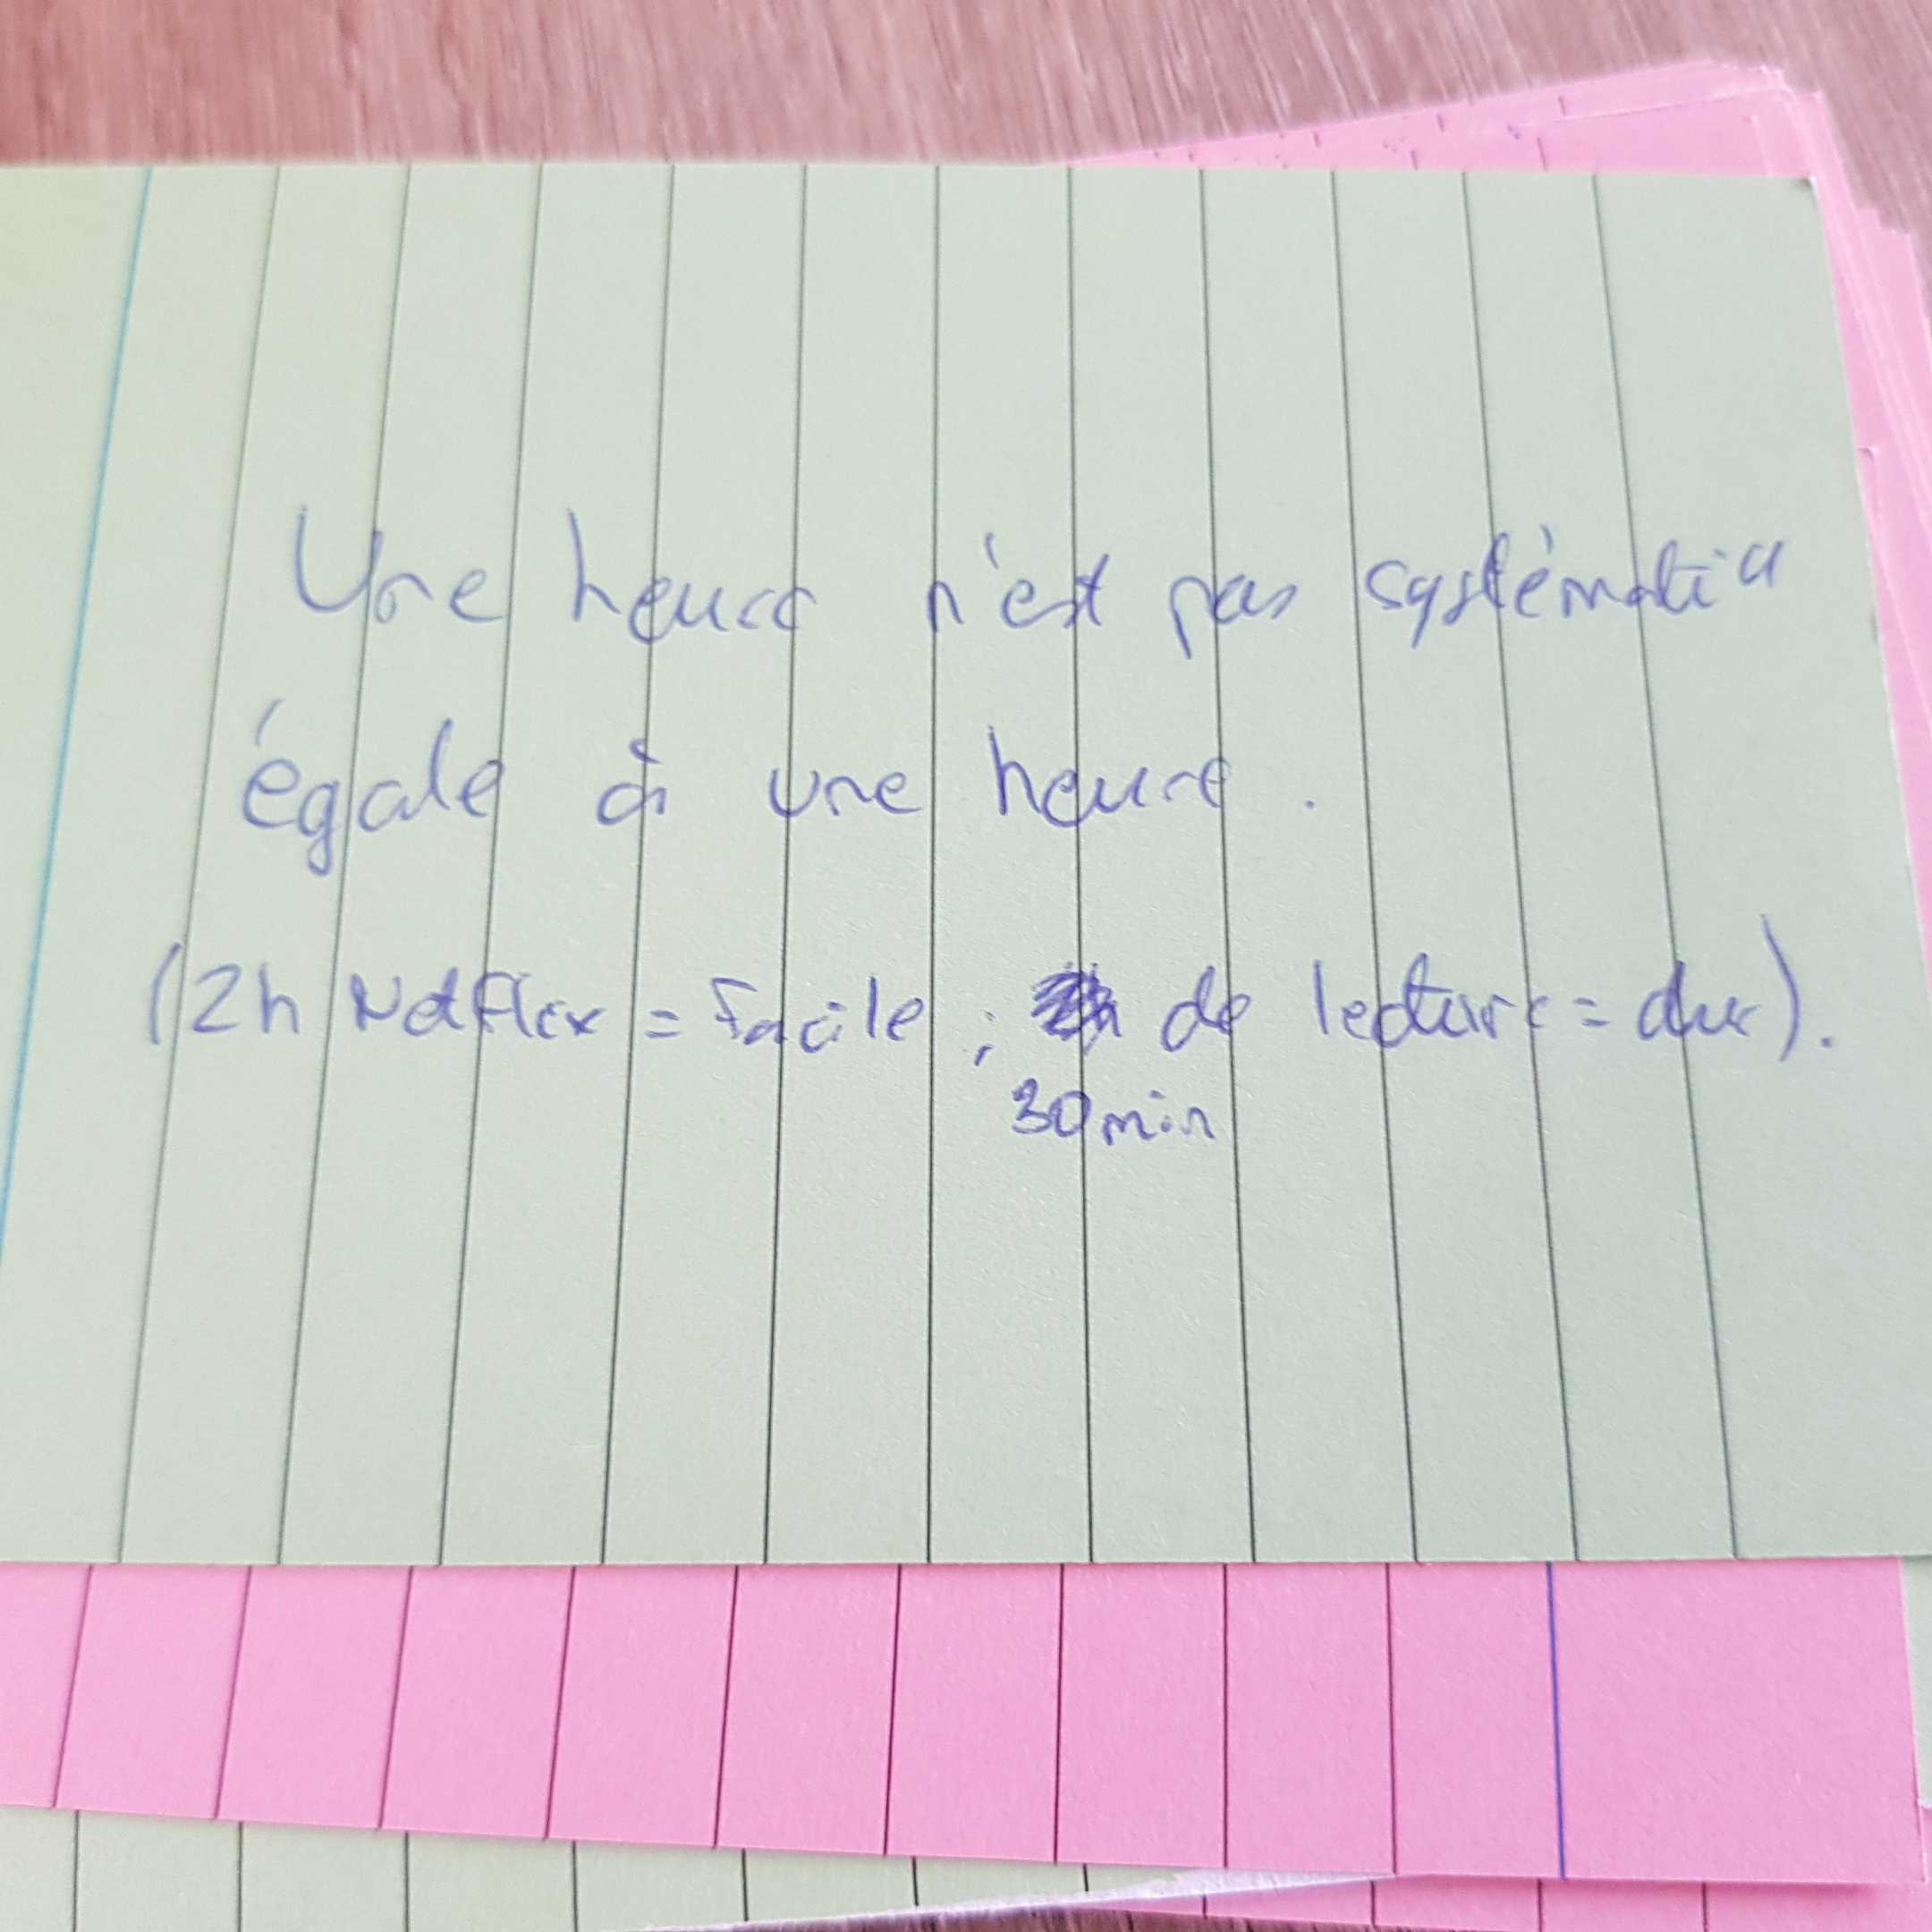 Une heure n'est pas systématiq
égale à une heure.
(2h Netflix = facile ; de lecture = dur).
30min